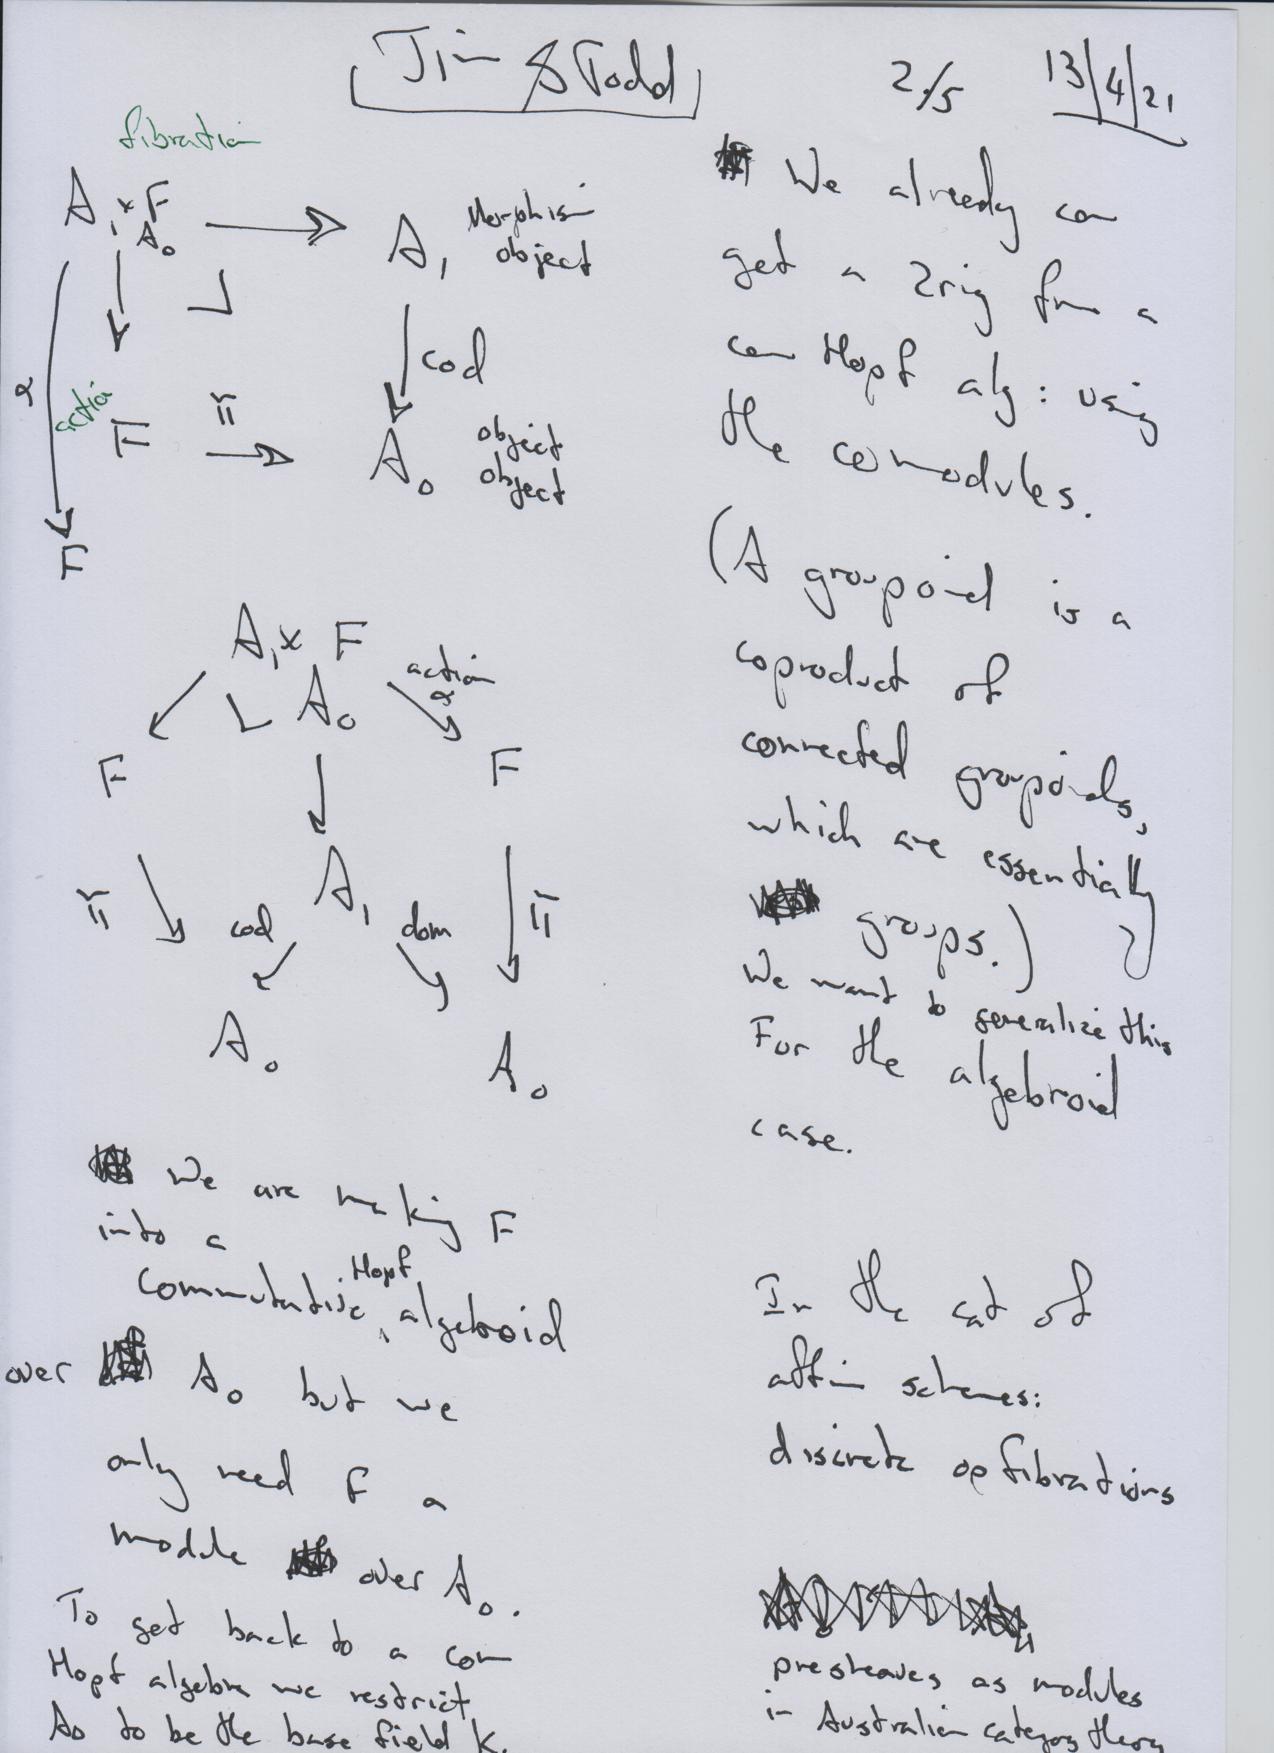 Jim & Todd
2/5
13/4/21
fibration
A₁ × F
A₀
A₁
Morphism
object
α
action
cod
F
π
A₀
object
object
F
A₁ × F
A₀
action
α
F
F
π
A₁
cod
dom
π
A₀
A₀
We are making F
into a
commutative Hopf algebroid
over A₀ but we
only need F a
module over A₀.
To get back to a com
Hopf algebra we restrict
A₀ to be the base field k.
We already can
get a 2rig from a
com Hopf alg: using
the comodules.
(A groupoid is a
coproduct of
connected groupoids,
which are essentially
groups.)
We want to generalize this
For the algebroid
case.
In the cat of
affin schemes:
discrete opfibrations
presheaves as modules
in Australian category theory